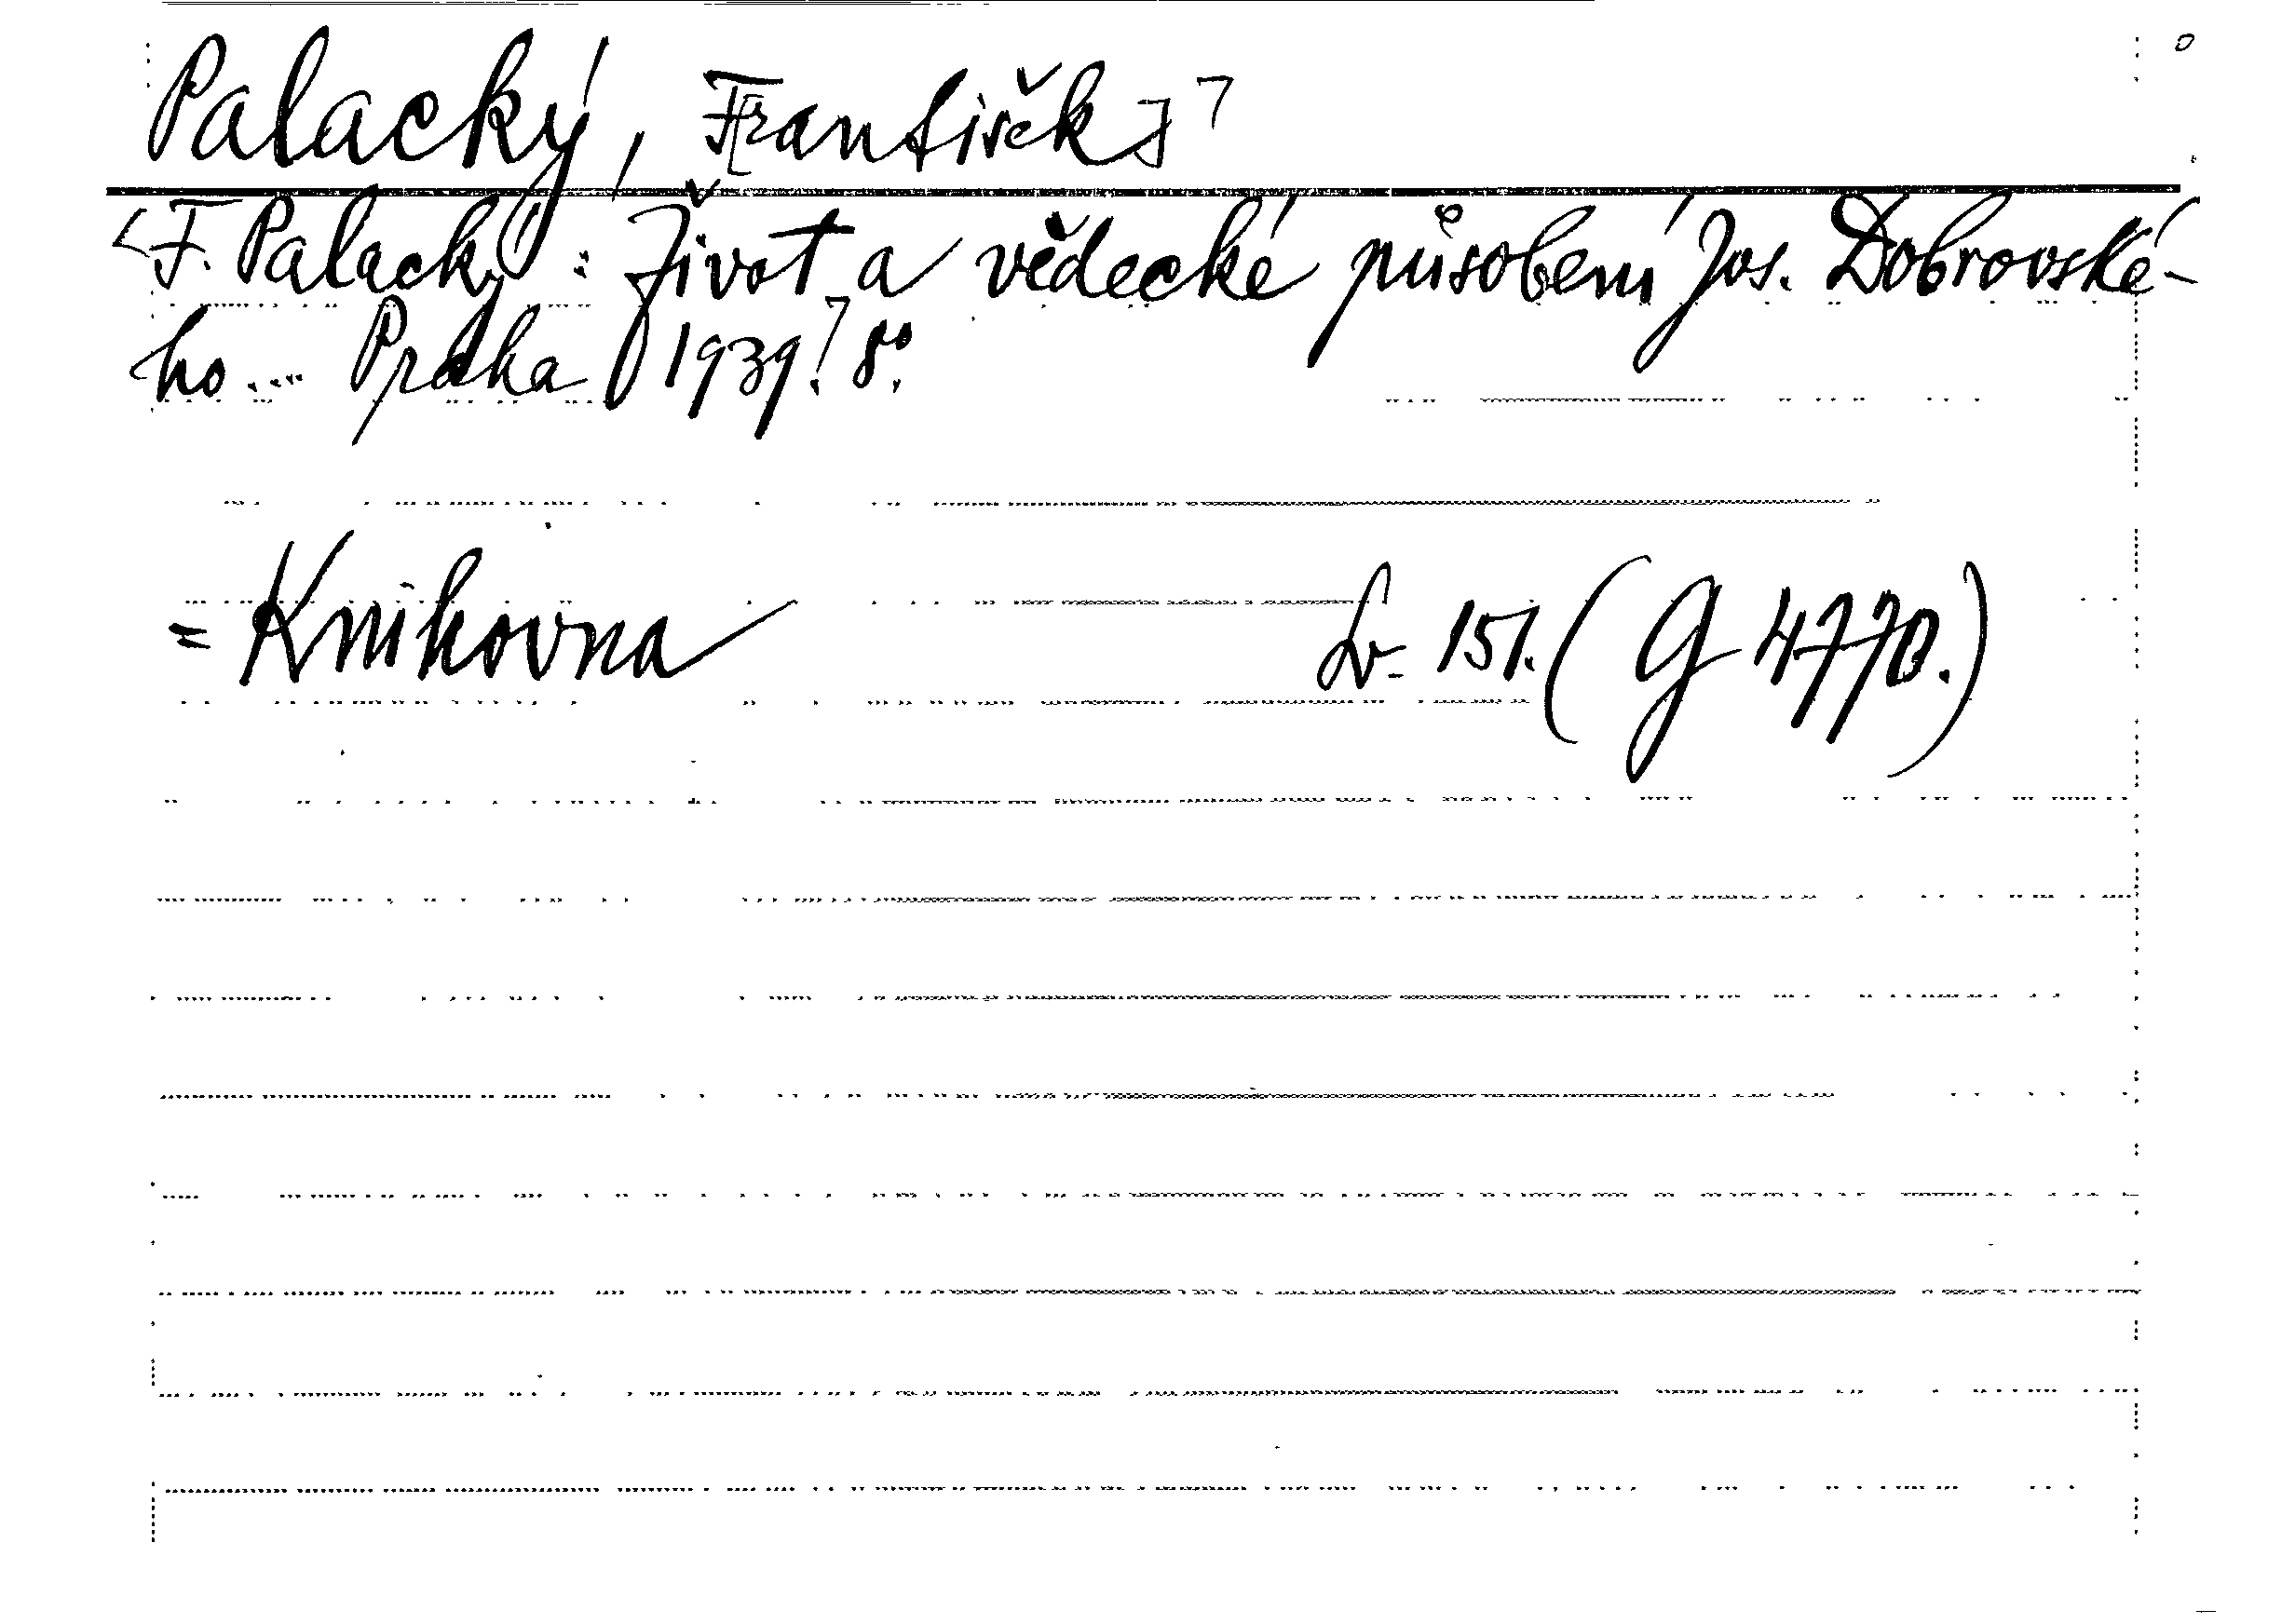 Palacký, F[rantišek]
F. Palacký: Život a vědecké působení Jos. Dobrovské-
ho.... Praha 1939. 8°.
= Knihovna sv. 151. (G 4770.)